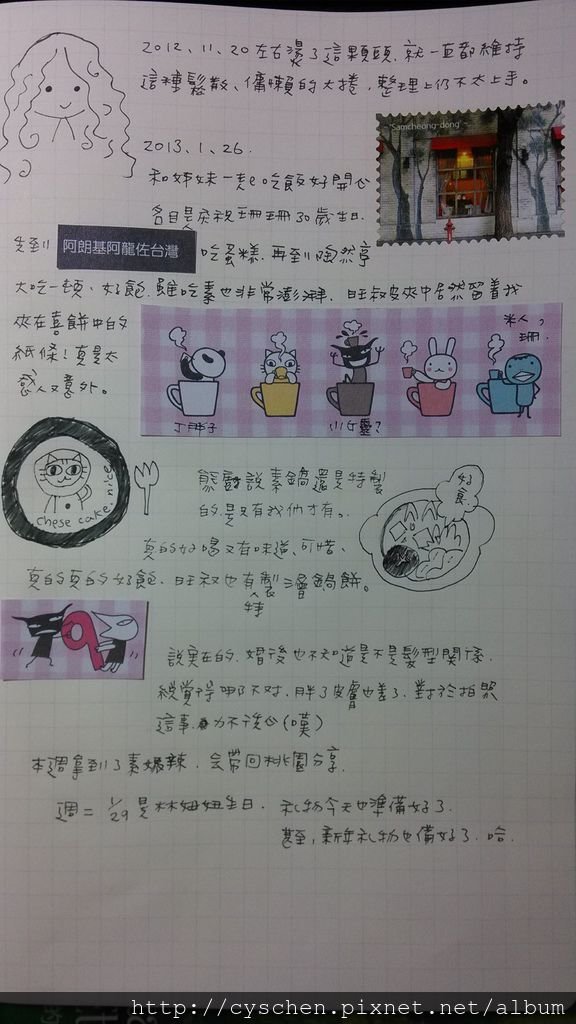 2012.11.20左右燙了這顆頭.就一直都維持
這種鬆散、慵懶的大捲,整理上仍不太上手。
"Samcheong-dong"
2013.1.26.
和姊妹一起吃飯好開心
名目是慶祝珊珊30歲生日.
先到 阿朗基阿龍佐台灣 吃蛋糕.再到陶然亭
大吃一頓、好飽.雖吃素也非常澎湃.旺叔皮夾中居然留著我
夾在喜餅中的
紙條!真是太
感人又意外。
米人,
珊.
丁胖子
小女靈?
chese cake. nice
熊廚說素鍋還是特製
的.是只有我們才有。
好食.
真的好喝又有味道.可惜、
真的真的好飽.旺叔也有特製澢鍋餅。
說實在的.婚後也不知道是不是髮型關係.
總覺得哪不對.胖了皮膚也差了.對於拍照
這事.力不從心(嘆)
本週拿到了素爆辣.会帶回桃園分享.
週二 1/29是林妞妞生日. 礼物今天也準備好了.
甚至,新年礼物也備好了.哈.
http://cyschen.pixnet.net/album